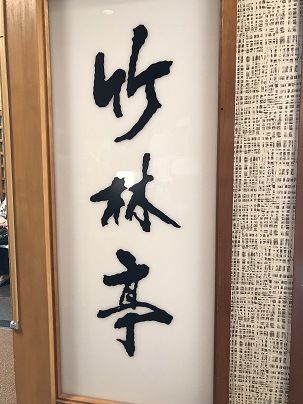 竹林亭